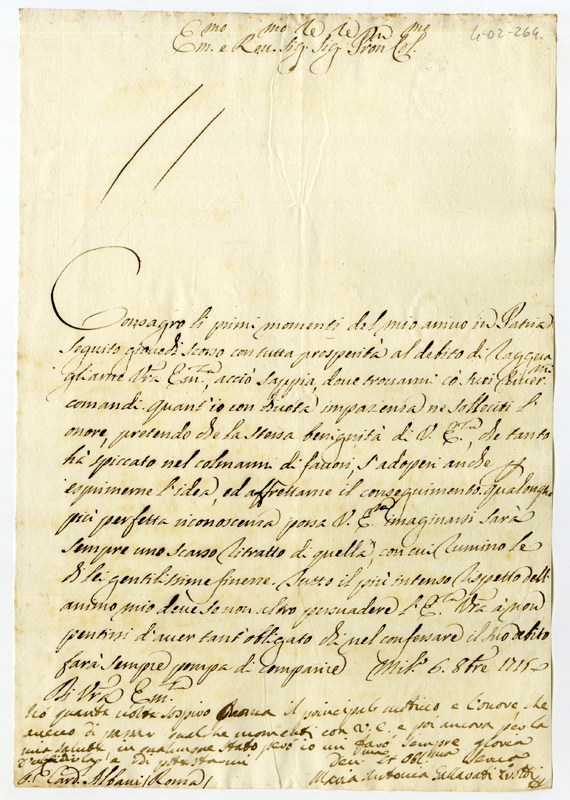 4-02-264.
Em.mo e Reu.mo Sig.re Sig.re Pron Col.mo
Consagro li primi momenti del mio arriuo in Patria
seguito giouedì scorso con tutta prosperità al debito di ragguа
gliarne Vra Em.za, acciò sappia, doue trouarmi co' suoi riuer.mi
comandi. Quant'io con tutta impazienza ne solleciti l'
onore, pretendo che la stessa benignità di V. E.za, che tanto
hà spiccato nel colmarmi di fauori, s'adoperi anche
esprimerne l'idea, ed affrettarne il conseguimento. Qualonque
più perfetta riconoscenza possa V. E.za imaginarsi sarà
sempre uno scarso ritratto di quella, con cui rumino le
di lei gentilissime finezze. Tutto il più intenso rispetto dell'
animo mio deue se non altro persuadere l'E.za Vra à non
pentirsi d'auer tant'obligato chi nel confessare il suo debito
farà sempre pompa di comparire Mil.o 6. 8bre 1715
Di Vra Em.za
quante uolte sospiro Roma il principale motiuo e l'onore che
di passar qualche momenti con V. E. e poi ancora per la
mia salute in qualunque stato però io un sempre gloria
e di protestarmi deu.ma et obl.ma serua
S. Card. Albani (Roma) Maria Antonia